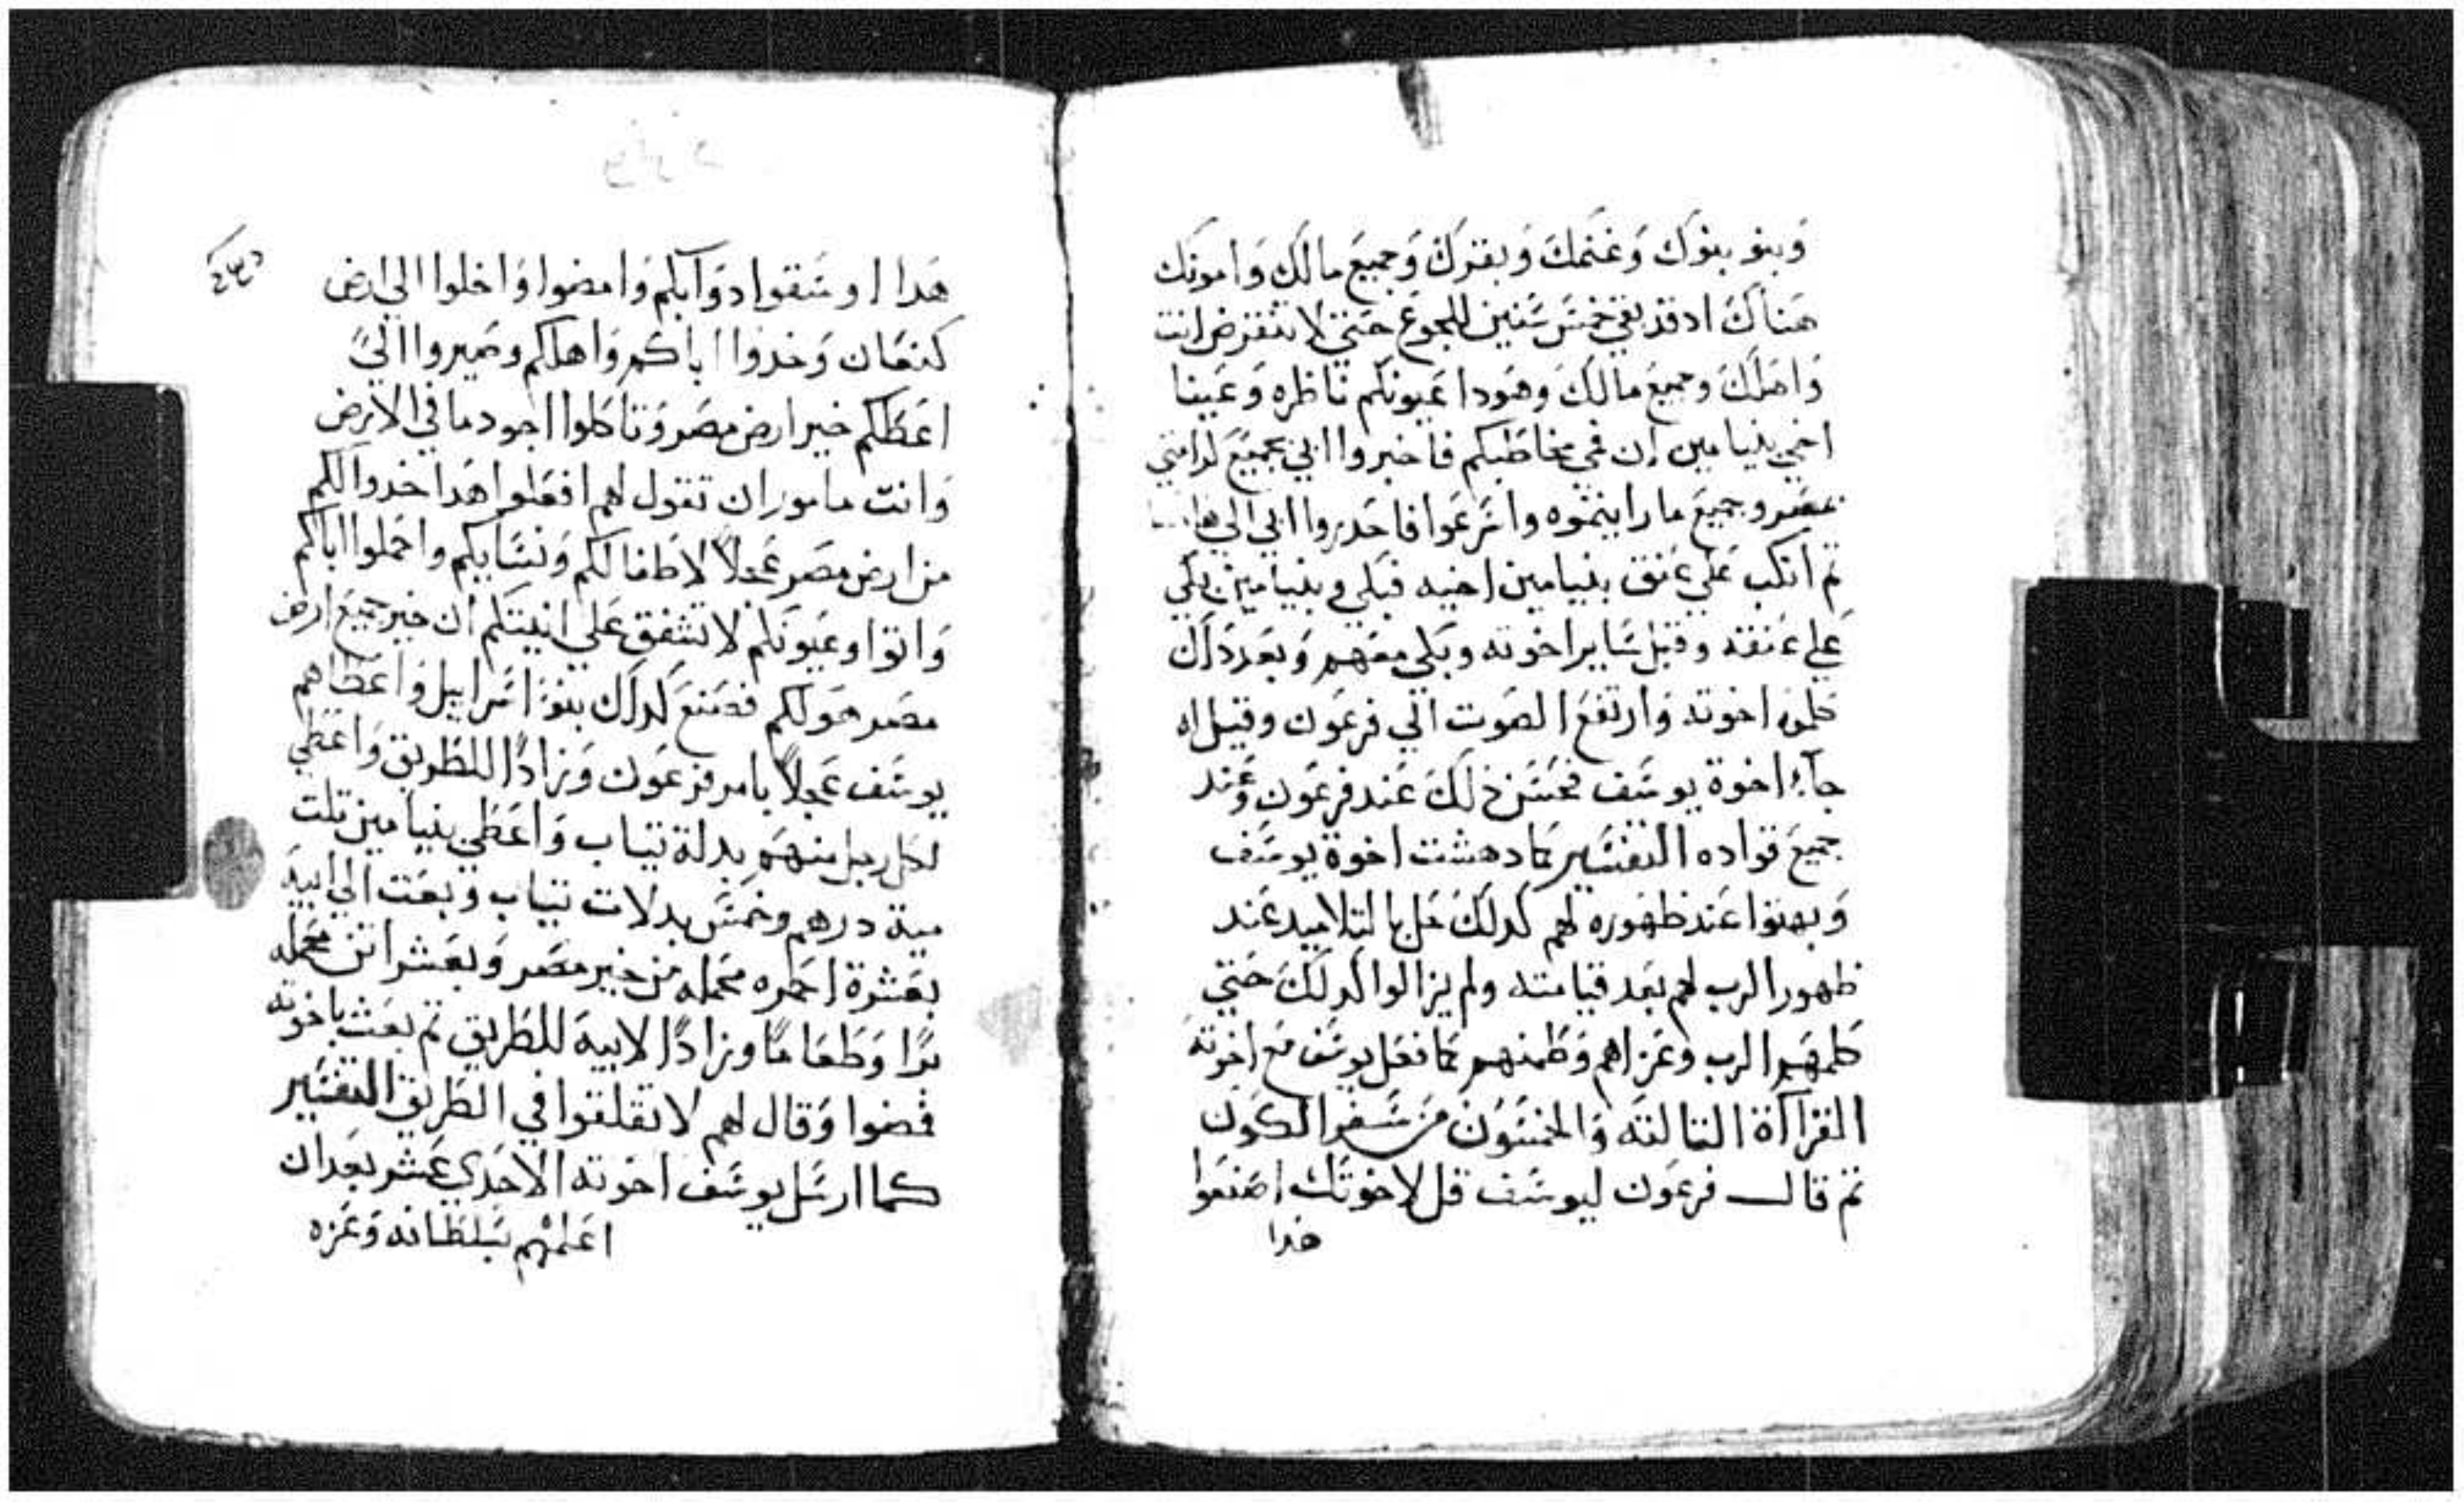 وَبنو بنوك وَغنمك وَبقرك وَجميع مالك وَامونك
هَناك اد قد بقي خمسَ سَنين للجوع حَتي لا تنقرض انت
وَاهلك وجميع مالك وهودا عَيونكم ناظره وَعَينا
اخي بنيامين ان في مخاطبكم فاخبروا ابي بجميع كرامتي
بمصر وجميع ما راينموه واسَرعَوا فاحدروا ابي الي هاهنا
تم انكب عَلي عَنق بنيامين اخيه فبكي وبنيامين بكي
عَلي عَنقه وقبل سَاير اخوته وبكي معَهم وَبعَد دلك
كلموه اخوته وَارتفعَ الصَوت الي فرعَون وقيل له
جآء اخوة يوسَف فحسَن ذلك عَند فرعَون وعَند
جميعَ قواده التفسَير كما دهشت اخوة يوسَف
وَبهتوا عَند ظهَوره لهم كدلك حَل بالتلاميد عَند
ظهور الرب لهم بعَد قيامته ولم يزالوا كدلك حَتي
كلمهَم الرب وعَزاهم وَطمنهم كما فعَل يوسَف معَ اخوته
القرآاة التالتَه وَالخمسَون من سَفر الكون
تم قال فرعَون ليوسَف قل لاخوتك اصَنعَوا
هدا
هَدا اوسَقوا دوَآبكم وَامضوا وَاخلوا الي ارض
كنعَان وَخدوا اباكم وَاهلكم وصَيروا اليَّ
اعَطكم خير ارض مصَر وَتاكلوا اجود ما في الارض
وَانت مامور ان تقول لهم افعَلوا هَدا خدوا لكم
من ارض مصَر عَجلاً لاطفالكم وَنسَايكم واحملوا اباكم
وَاتوا وعَيونكم لا تشفق عَلي انيتكم ان خير جميعَ ارض
مصَر هَو لكم فصَنعَ كدلك بنوَ اسَراييل وَاعَطاهم
يوسَف عَجلاً بامر فرعَون وَزادًا للطريق وَاعَطي
لكل رجل منهَم بدلة تياب وَاعَطي بنيامين تلت
مية درهم وخمسَ بدلات تياب وبعَت الي ابيه
بعَشرة احمره محمله من خير مصَر وَبعَشر اتن محمله
برًا وَطعَامًا وزادًا لابيه للطريق تم بعَث باخوته
فمضوا وَقال لهم لا تقلقوا في الطريق التفسَير
كما ارسَل يوسَف اخوته الاحَدي عَشر بعَد ان
اعَلمهْم بسَلطانه وَعَزه